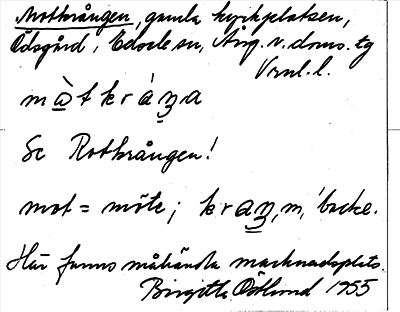 Motkrången, gamla kyrkplatsen,
Ödsgård, Edsele sn, Ång. v. doms. tg
Vrnl. l.
màtkráŋa
Se Rotkrången!
mot = möte; kraŋ, m, 'backe.
Här fanns måhända marknadsplats.
Birgitta Östlund 1955